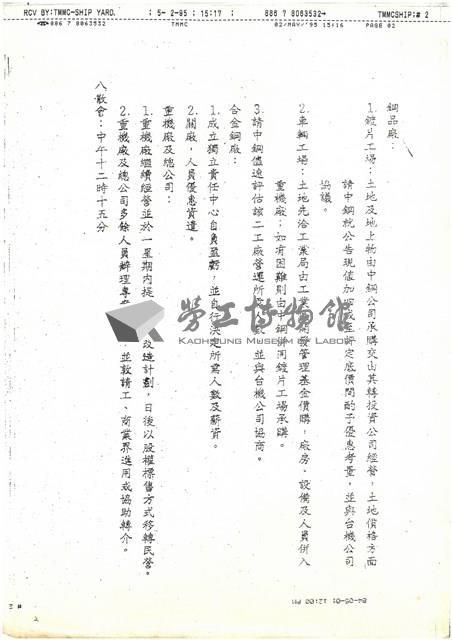 RCV BY:TMMC-SHIP YARD. : 5- 2-95 ; 15:17 ; 886 7 8063532→ TMMCSHIP;# 2
☎886 7 8063532 TMMC 02/MAY/'95 15:16 PAGE 02
鋼品廠：
1.鍍片工場：土地及地上物由中鋼公司承購交由其轉投資公司經營，土地價格方面
請中鋼就公告現值加四成至評定底價間酌予優惠考量，並與台機公司
協議。
2.車輛工場：土地先洽工業局由工業開發管理基金價購，廠房、設備及人員併入
重機廠；如有困難則由中鋼併同鍍片工場承購。
3.請中鋼儘速評估該二工廠營運所需人數，並與台機公司協商。
合金鋼廠：
1.成立獨立責任中心自負盈虧，並自行決定所需人數及薪資。
2.關廠，人員優惠資遣。
重機廠及總公司：
1.重機廠繼續經營並於一星期內提 改造計劃，日後以股權標售方式移轉民營。
2.重機廠及總公司多餘人員辦理專 並敦請工、商業界進用或協助轉介。
八、散會：中午十二時十五分
勞工博物館
Kaohsiung Museum of Labor
84-05-01 12:00 PM
2